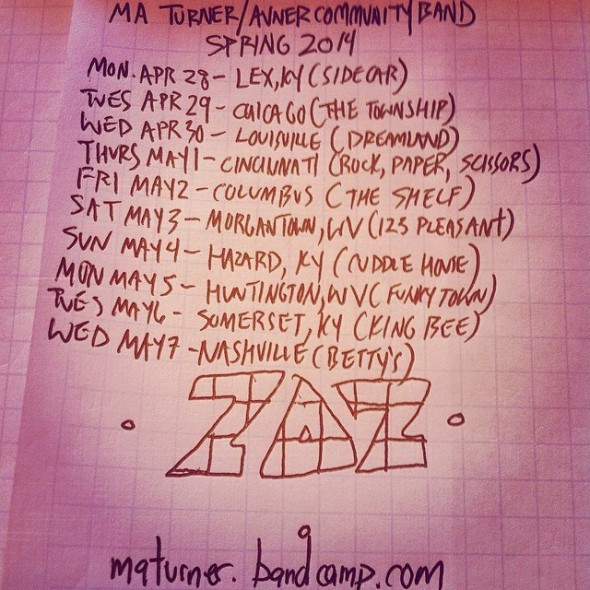 MA TURNER/AVNER COMMUNITY BAND
SPRING 2014
MON. APR 28 - LEX, KY (SIDECAR)
TUES APR 29 - CHICAGO (THE TOWNSHIP)
WED APR 30 - LOUISVILLE (DREAMLAND)
THURS MAY 1 - CINCIUNATI (ROCK, PAPER, SCISSORS)
FRI MAY 2 - COLUMBUS (THE SHELF)
SAT MAY 3 - MORGANTOWN, WV (123 PLEASANT)
SUN MAY 4 - HAZARD, KY (HOUSE)
MON MAY 5 - HUNTINGTON, WV (FUNKY TOWN)
TUES MAY 6 - SOMERSET, KY (KING BEE)
WED MAY 7 - NASHVILLE (BETTY'S)
ZAZ
maturner.bandcamp.com